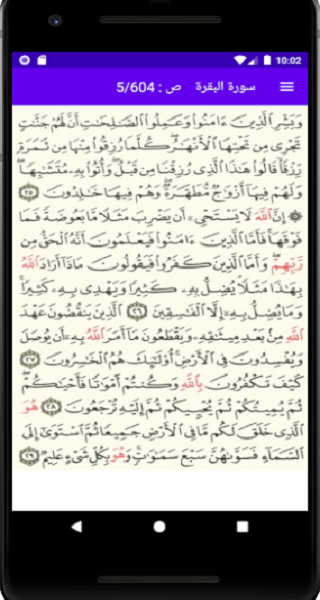 10:02
سورة البقرة ص : 5/604
وَبَشِّرِ ٱلَّذِينَ ءَامَنُوا۟ وَعَمِلُوا۟ ٱلصَّـٰلِحَـٰتِ أَنَّ لَهُمْ جَنَّـٰتٍ
تَجْرِى مِن تَحْتِهَا ٱلْأَنْهَـٰرُ ۖ كُلَّمَا رُزِقُوا۟ مِنْهَا مِن ثَمَرَةٍ
رِّزْقًا ۙ قَالُوا۟ هَـٰذَا ٱلَّذِى رُزِقْنَا مِن قَبْلُ ۖ وَأُتُوا۟ بِهِۦ مُتَشَـٰبِهًا ۖ
وَلَهُمْ فِيهَآ أَزْوَٰجٌ مُّطَهَّرَةٌ ۖ وَهُمْ فِيهَا خَـٰلِدُونَ ٢٥
۞ إِنَّ ٱللَّهَ لَا يَسْتَحْىِۦٓ أَن يَضْرِبَ مَثَلًا مَّا بَعُوضَةً فَمَا
فَوْقَهَا ۚ فَأَمَّا ٱلَّذِينَ ءَامَنُوا۟ فَيَعْلَمُونَ أَنَّهُ ٱلْحَقُّ مِن
رَّبِّهِمْ ۖ وَأَمَّا ٱلَّذِينَ كَفَرُوا۟ فَيَقُولُونَ مَاذَآ أَرَادَ ٱللَّهُ
بِهَـٰذَا مَثَلًا ۘ يُضِلُّ بِهِۦ كَثِيرًا وَيَهْدِى بِهِۦ كَثِيرًا ۚ
وَمَا يُضِلُّ بِهِۦٓ إِلَّا ٱلْفَـٰسِقِينَ ٢٦ ٱلَّذِينَ يَنقُضُونَ عَهْدَ
ٱللَّهِ مِنۢ بَعْدِ مِيثَـٰقِهِۦ وَيَقْطَعُونَ مَآ أَمَرَ ٱللَّهُ بِهِۦٓ أَن يُوصَلَ
وَيُفْسِدُونَ فِى ٱلْأَرْضِ ۚ أُو۟لَـٰٓئِكَ هُمُ ٱلْخَـٰسِرُونَ ٢٧
كَيْفَ تَكْفُرُونَ بِٱللَّهِ وَكُنتُمْ أَمْوَٰتًا فَأَحْيَـٰكُمْ ۖ
ثُمَّ يُمِيتُكُمْ ثُمَّ يُحْيِيكُمْ ثُمَّ إِلَيْهِ تُرْجَعُونَ ٢٨ هُوَ
ٱلَّذِى خَلَقَ لَكُم مَّا فِى ٱلْأَرْضِ جَمِيعًا ثُمَّ ٱسْتَوَىٰٓ إِلَى
ٱلسَّمَآءِ فَسَوَّىٰهُنَّ سَبْعَ سَمَـٰوَٰتٍ ۚ وَهُوَ بِكُلِّ شَىْءٍ عَلِيمٌ ٢٩